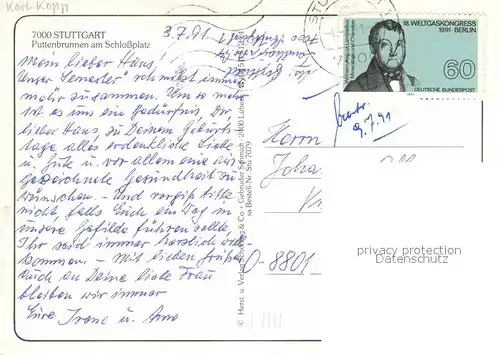 Karl Kopp
7000 STUTTGART
Puttenbrunnen am Schloßplatz
3.7.91
Mein lieber Hans,
Unser Semester schmilzt immer
mehr zusammen. Um so mehr
ist es uns ein Bedürfnis, Dir,
lieber Hans, zu Deinem Geburts-
tage alles erdenkliche Liebe
u. Gute u. vor allem eine aus-
gezeichnete Gesundheit zu
wünschen. – Und vergiß bitte
nicht, falls Euch ein Weg in
unsere Gefilde führen sollte,
Ihr seid immer herzlich will-
kommen. – Mit lieben Grüßen
auch an Deine liebe Frau
bleiben wir immer
Eure Irene u. Arno
© Herst. u. Verlag Schöning & Co · Gebrüder Schmidt
Bestell-Nr. Stu 7079
18. WELTGASKONGRESS
1991 · BERLIN
60
DEUTSCHE BUNDESPOST
9.7.91
Herrn
Joha
O-8801
privacy protection
AnsichtskartenCenter